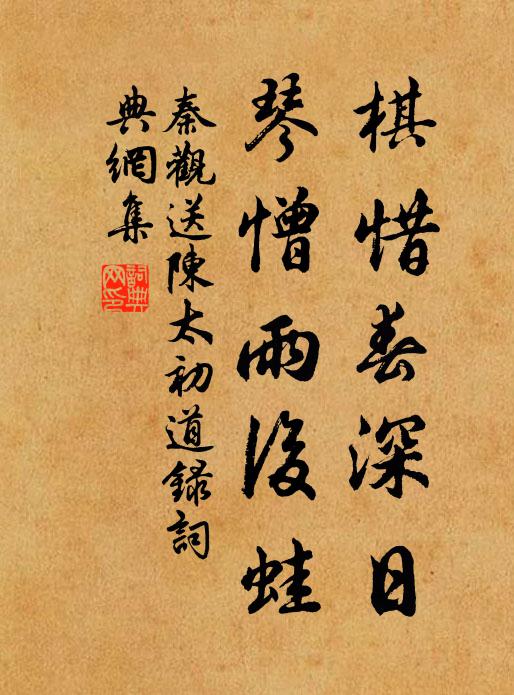 棋惜春深日
琴憎雨後蛙
秦觀送陳太初道錄詞
典網集
詞典網印